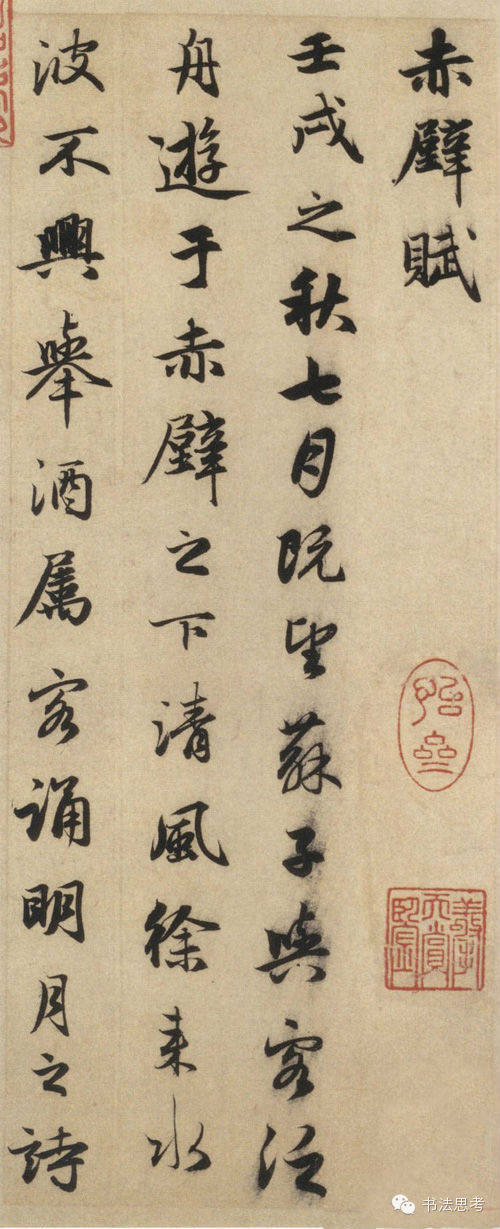 赤壁賦
壬戌之秋七月既望蘇子與客泛
舟遊于赤壁之下清風徐来水
波不興舉酒属客誦明月之詩
书法思考